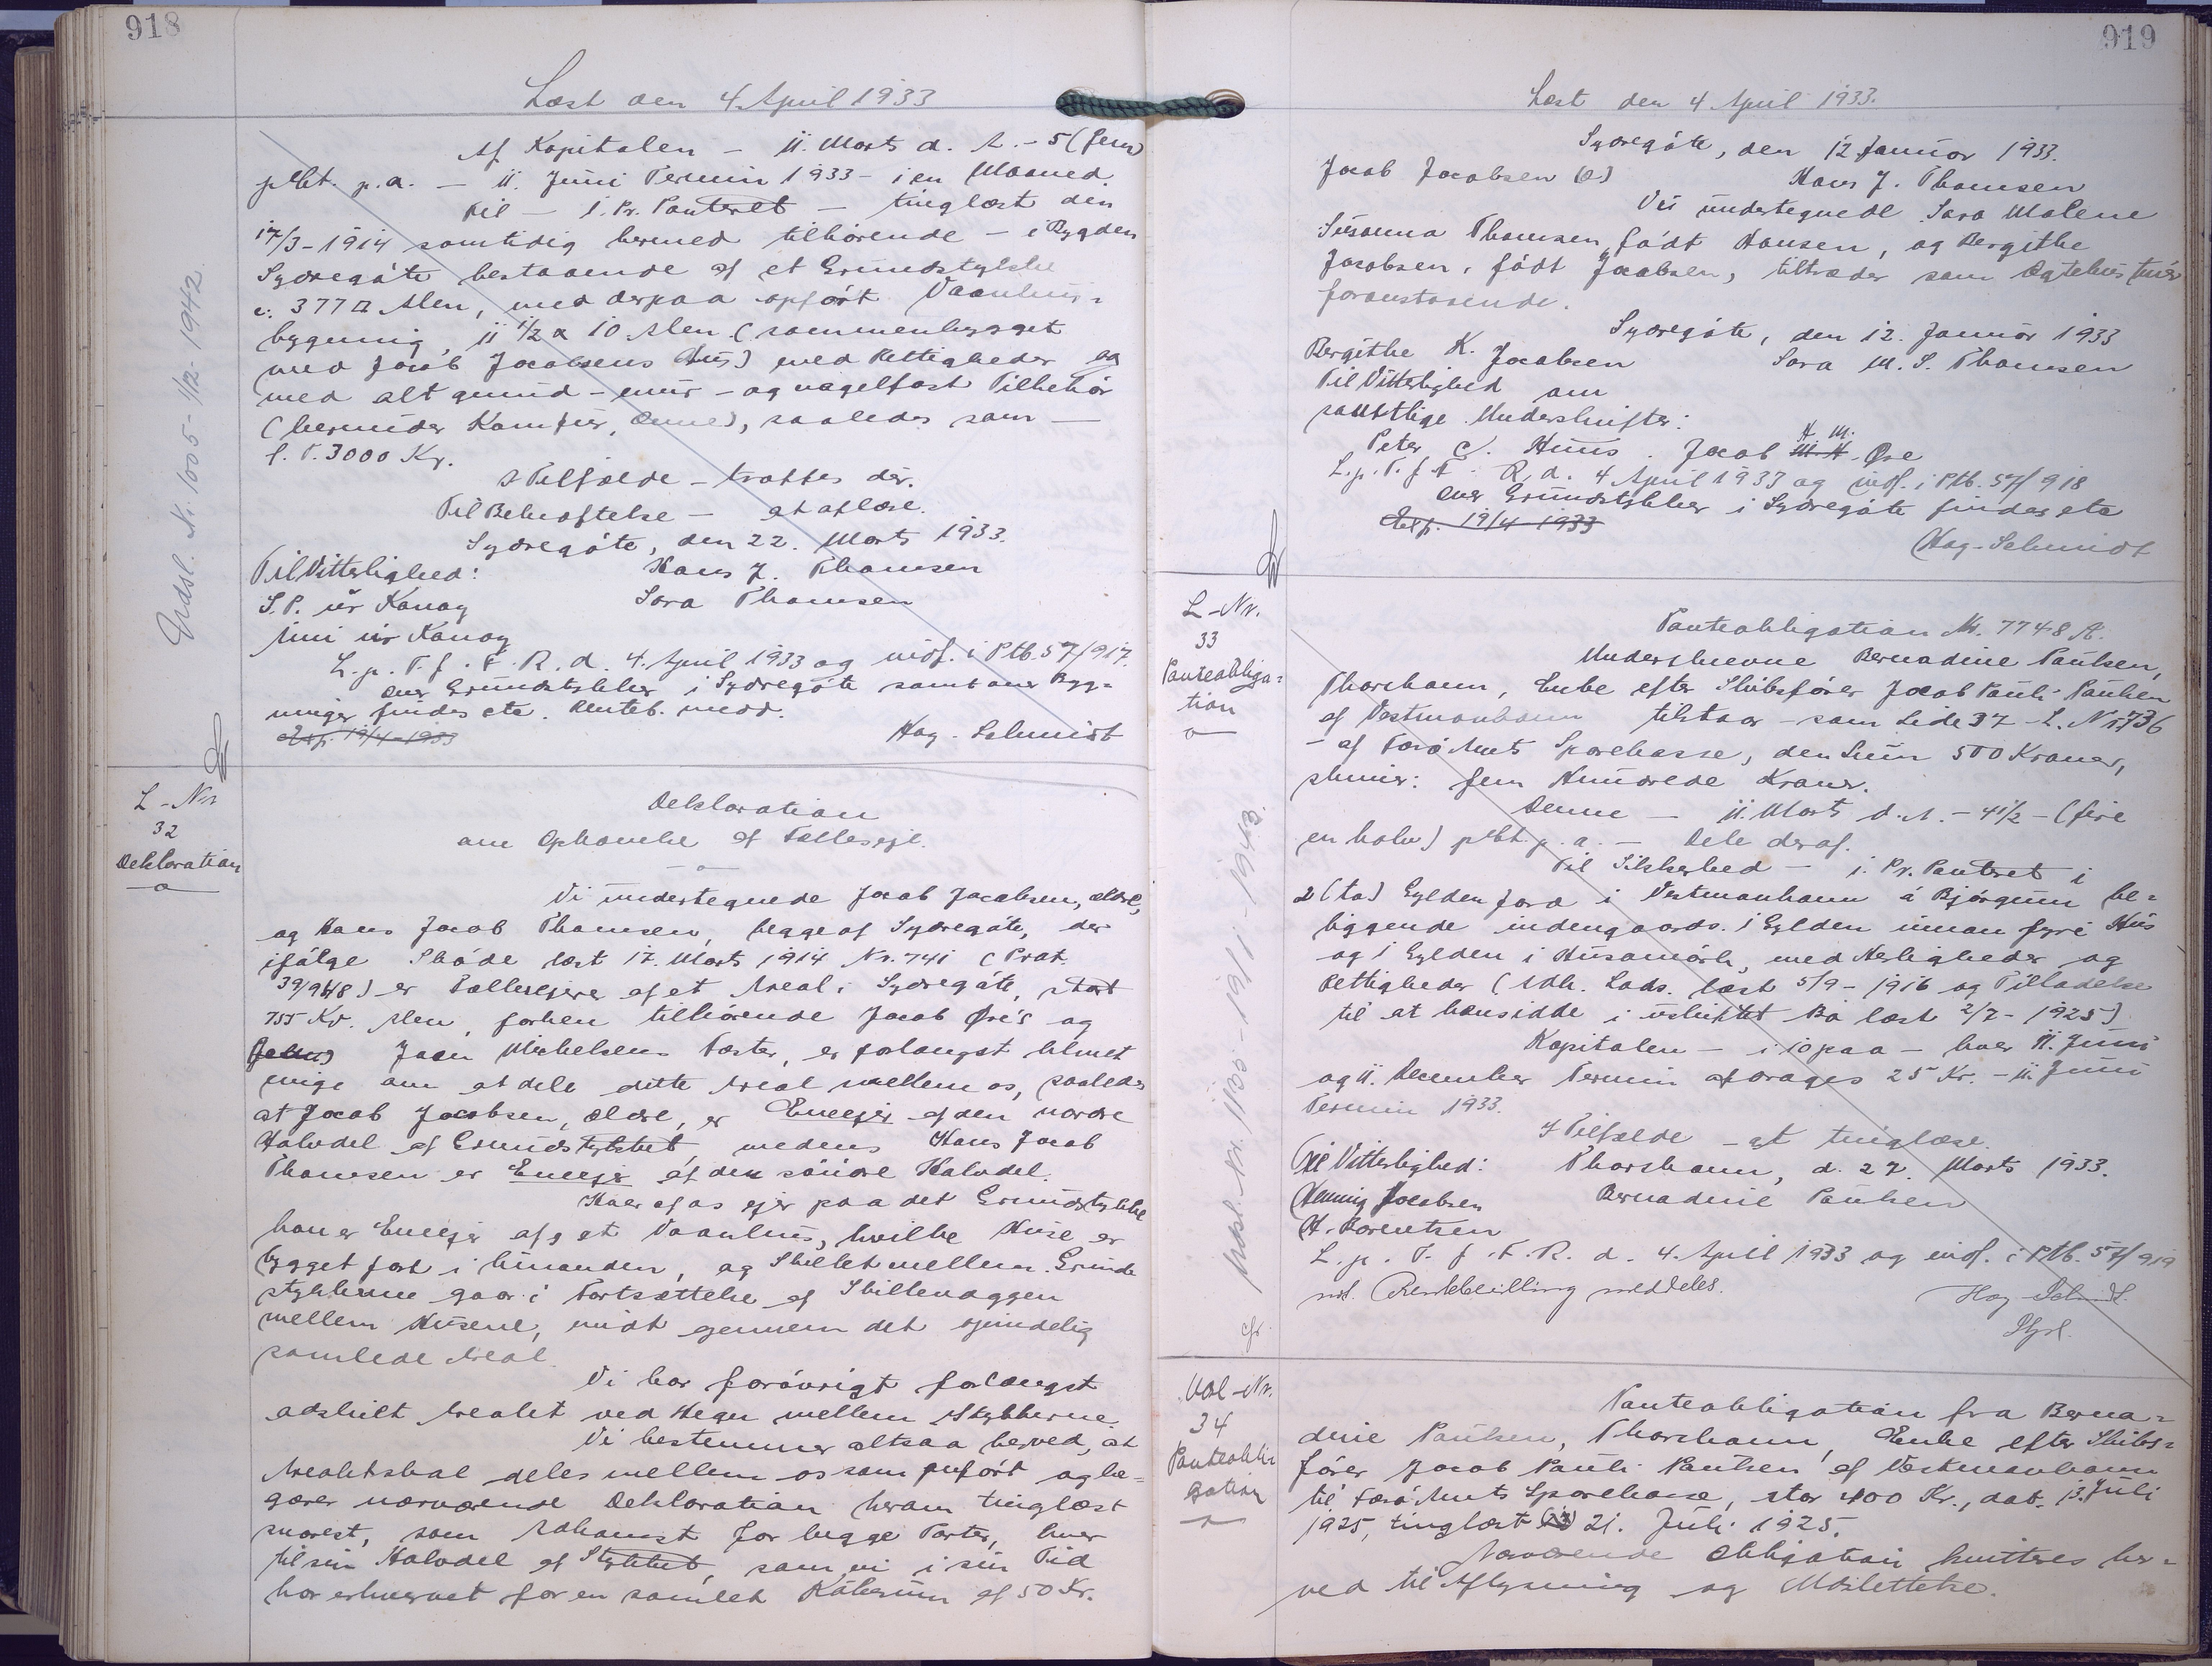 918
Læst den 4. April 1933
Udsl. Nr. 1005 - 1/12 - 1942.
Af Kapitalen - 11. Marts d. A. - 5 (fem)
pCt. p.a. - 11. Juni Termin 1933 - i en Maaned.
Til - 1. Pr. Panteret - tinglæst den
17/3-1914 samtidig hermed tilhørende - i Bygden
Sydregøte bestaaende af et Grundstykke
c. 377 □ Alen, med derpaa opført Vaanhus-
bygning 11 1/2 x 10 Alen (sammenbygget
med Jacob Jacobsens Hus) med Rettigheder og
med alt grund- mur- og nagelfast Tilbehør
(herunder Komfur, Ovne), saaledes som -
f. T. 3000 Kr.
I Tilfælde - træffes der.
Til Bekræftelse - at aflæse.
Sydregøte, den 22. Marts 1933.
Til Vitterlighed: Hans J. Thomsen
S. P. úr Konoy Sara Thomsen
Imi úr Konoy
L. p. T. f. F. R. d. 4. April 1933 og indf. i Ptb. 57/917.
Over Grundstykker i Sydregøte samt over Byg-
ninger findes etc. Renteb. medd.
Exp. 19/4-1933 Hag-Schmidt
L-Nr
32
Deklaration
Deklaration
om Ophævelse af Fælleseje.
Vi undertegnede Jacob Jacobsen, ældre,
og Hans Jacob Thomsen, begge af Sydregøte, der
ifølge Skøde læst 17. Marts 1914 Nr. 741 (Prot.
39/948) er Fællesejere af et Areal i Sydregøte, stort
755 Kv. Alen, forhen tilhørende Jacob Øre's og
Joen Michelsens Fæster, er forlængst blevet
enige om at dele dette Areal mellem os, saaledes
at Jacob Jacobsen, ældre, er Eneejer af den nordre
Halvdel af Grundstykket, medens Hans Jacob
Thomsen er Eneejer af den söndre Halvdel.
Hver af os ejer paa det Grundstykke
han er Eneejer af, et Vaanhus, hvilke Huse er
bygget fast i hinanden, og Skellet mellem Grund-
stykkerne gaar i Fortsættelse af Skillevæggen
mellem Husene, midt gennem det oprindelig
samlede Areal.
Vi har forøvrigt forlængst
adskilt Arealet ved Hegn mellem Stykkerne.
Vi bestemmer altsaa herved, at
Arealet skal deles mellem os som anført og be-
gærer nærværende Deklaration herom tinglæst
snarest, som Adkomst for begge Parter, hver
til sin Halvdel af Stykket, som vi i sin Tid
har erhvervet for en samlet Købesum af 50 Kr.
919
Læst den 4. April 1933.
Sydregøte, den 12 Januar 1933.
Jacob Jacobsen (æ) Hans J. Thomsen
Vi undertegnede Sara Malene
Susanna Thomsen, født Hansen, og Bergithe
Jacobsen, født Jacobsen, tiltræder som Ægtehustruer
foranstaaende.
Sydregøte, den 12. Januar 1933
Bergithe K. Jacobsen Sara M. S. Thomsen
Til Vitterlighed om
samtlige Underskrifter:
Peter C. Huus. Jacob H. M. Øre
L. p. T. f. F. R. d. 4 April 1933 og indf. i Ptb. 57/918
Over Grundstykker i Sydregøte findes etc
Exp. 19/4 1933
Hag-Schmidt
L-Nr.
33
Panteobliga-
tion
Udsl. Nr. 1100 - 19/1 - 1943.
Panteobligation Nr. 7748 A.
Underskrevne Bernadine Paulsen,
Thorshavn, Enke efter Skibsfører Jacob Pauli Paulsen
af Vestmanhavn tilstaar - som Side 37 L. Nr. 736
- af Færø Amts Sparekasse, den Sum 500 Kroner,
skriver: Fem Hundrede Kroner.
Denne - 11. Marts d. A. - 4 1/2 - (fire
en halv) pCt. p. a. - Dele deraf.
Til Sikkerhed - 1. Pr. Panteret i
2 (to) Gylden Jord i Vestmanhavn á Bjørgum be-
liggende indengaards. 1 Gylden innan fyri Hús
og 1 Gylden i Húsamørk, med Herligheder og
Rettigheder (Udk. Lods. læst 5/9-1916 og Tilladelse
til at hensidde i uskiftet Bo læst 2/7-1925)
Kapitalen - i 10 paa - hver 11. Juni
og 11. December Termin afdrages 25 Kr. - 11. Juni
Termin 1933.
I Tilfælde - at tinglæse.
Til Vitterlighed: Thorshavn, d. 27. Marts 1933.
Henning Jacobsen Bernadine Paulsen
H. Lorentzen
L. p. T. f. F. R. d. 4. April 1933 og indf. i Ptb. 57/919
Rentebevilling meddeles.
Hag-Schmidt
Udsl-Nr.
34
Panteobli-
gation
Panteobligation fra Berna-
dine Paulsen, Thorshavn, Enke efter Skibs-
fører Jacob Pauli Paulsen af Vestmanhavn
til Færø Amts Sparekasse, stor 400 Kr., dat. 13. Juli
1925, tinglæst 21. Juli 1925.
Nærværende Obligation kvitteres her-
ved til Aflysning og Udslettelse.